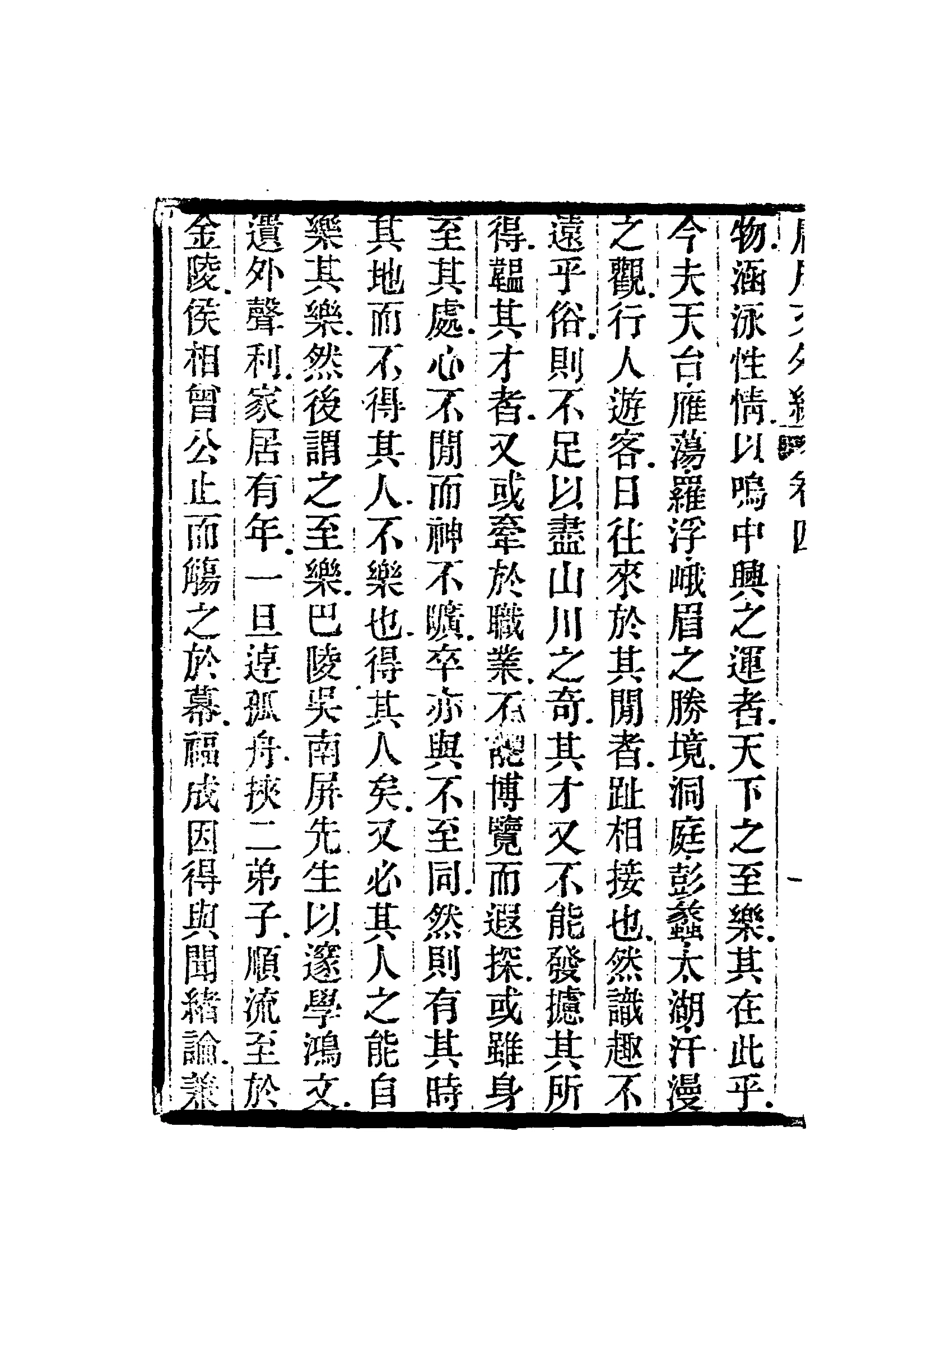 庸盦文外編 卷四 一
物涵泳性情以鳴中興之運者天下之至樂其在此乎
今夫天台雁蕩羅浮峨眉之勝境洞庭彭蠡太湖汗漫
之觀行人遊客日往來於其閒者趾相接也然識趣不
遠乎俗則不足以盡山川之奇其才又不能發攄其所
得韞其才者又或牽於職業不能博覽而遐探或雖身
至其處心不閒而神不曠卒亦與不至同然則有其時
其地而不得其人不樂也得其人矣又必其人之能自
樂其樂然後謂之至樂巴陵吳南屏先生以邃學鴻文
遺外聲利家居有年一旦逴孤舟挾二弟子順流至於
金陵侯相曾公止而觴之於幕福成因得與聞緒論兼